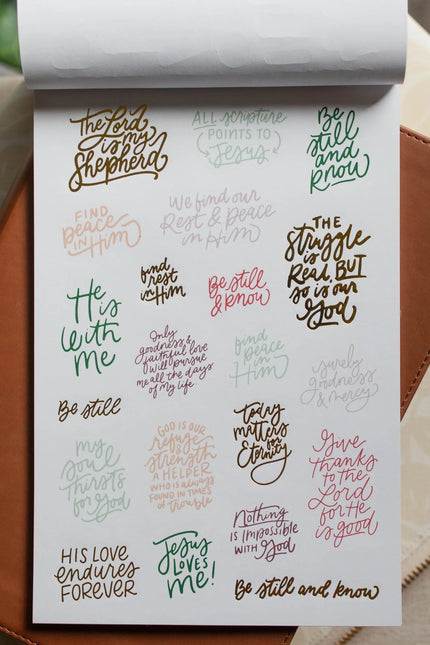 The Lord
is my
Shepherd
ALL scripture
POINTS TO
Jesus
Be
still
and
know
FIND
peace
IN Him
We find our
Rest & Peace
in Him
THE
Struggle
is
Real, BUT
so is our
God
find
rest
in Him
Be still
& know
He
is
with
me
Only
goodness &
faithful love
will pursue
me all the days
of my life
find
peace
in
Him
surely
goodness
& mercy
Be still
today
matters
for
Eternity
my
soul
thirsts
for God
GOD IS OUR
refuge
&
strength
A HELPER
WHO is always
FOUND IN TIMES
of trouble
Give
thanks
to the
Lord
for He
is good
Nothing
IS Impossible
WITH God
HIS LOVE
endures
FOREVER
Jesus
LOVES
me!
Be still and know